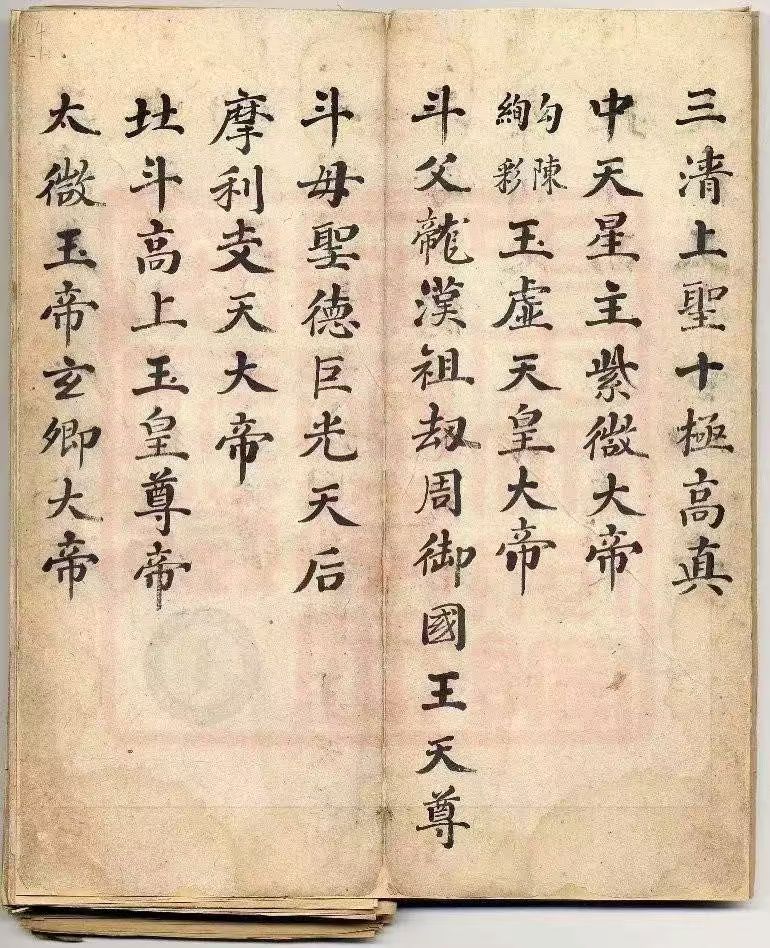 三清上聖十極高真
中天星主紫微大帝
勾陳絢彩玉虛天皇大帝
斗父龍漢祖劫周御國王天尊
斗母聖德巨光天后
摩利支天大帝
北斗高上玉皇尊帝
太微玉帝玄卿大帝